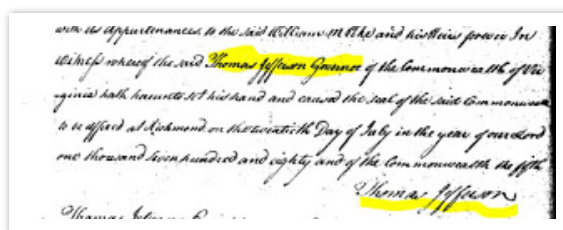 with its appurtenances, to the said William and his Heirs forever In
Witness whereof the said Thomas Jefferson Governor of the Commonwealth of Vir
ginia hath hereunto set his hand and caused the seal of the said Commonwealth
to be affixed at Richmond on the twentieth Day of July in the year of our Lord
one thousand seven hundred and eighty and of the Commonwealth the fifth
Thomas Jefferson
Thomas